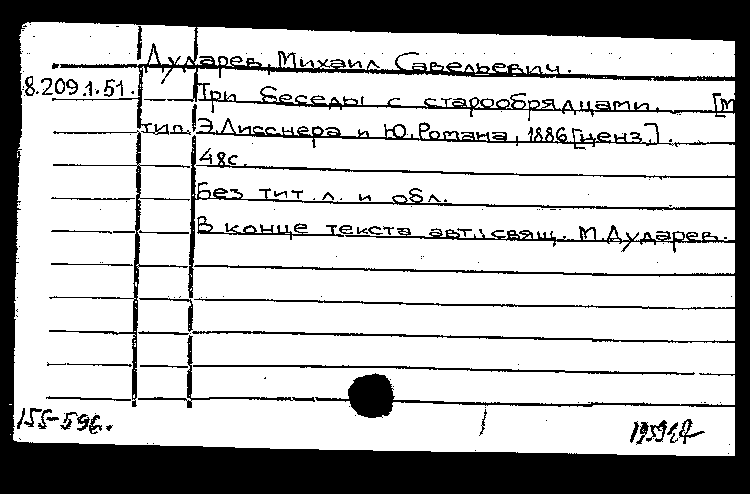 Дударев, Михаил Савельевич.
8.209.1.51. Три беседы с старообрядцами. [М
тип. Э.Лисснера и Ю.Романа, 1886[ценз.].
48с.
Без тит.л. и обл.
В конце текста авт.: свящ. М.Дударев.
155-596.